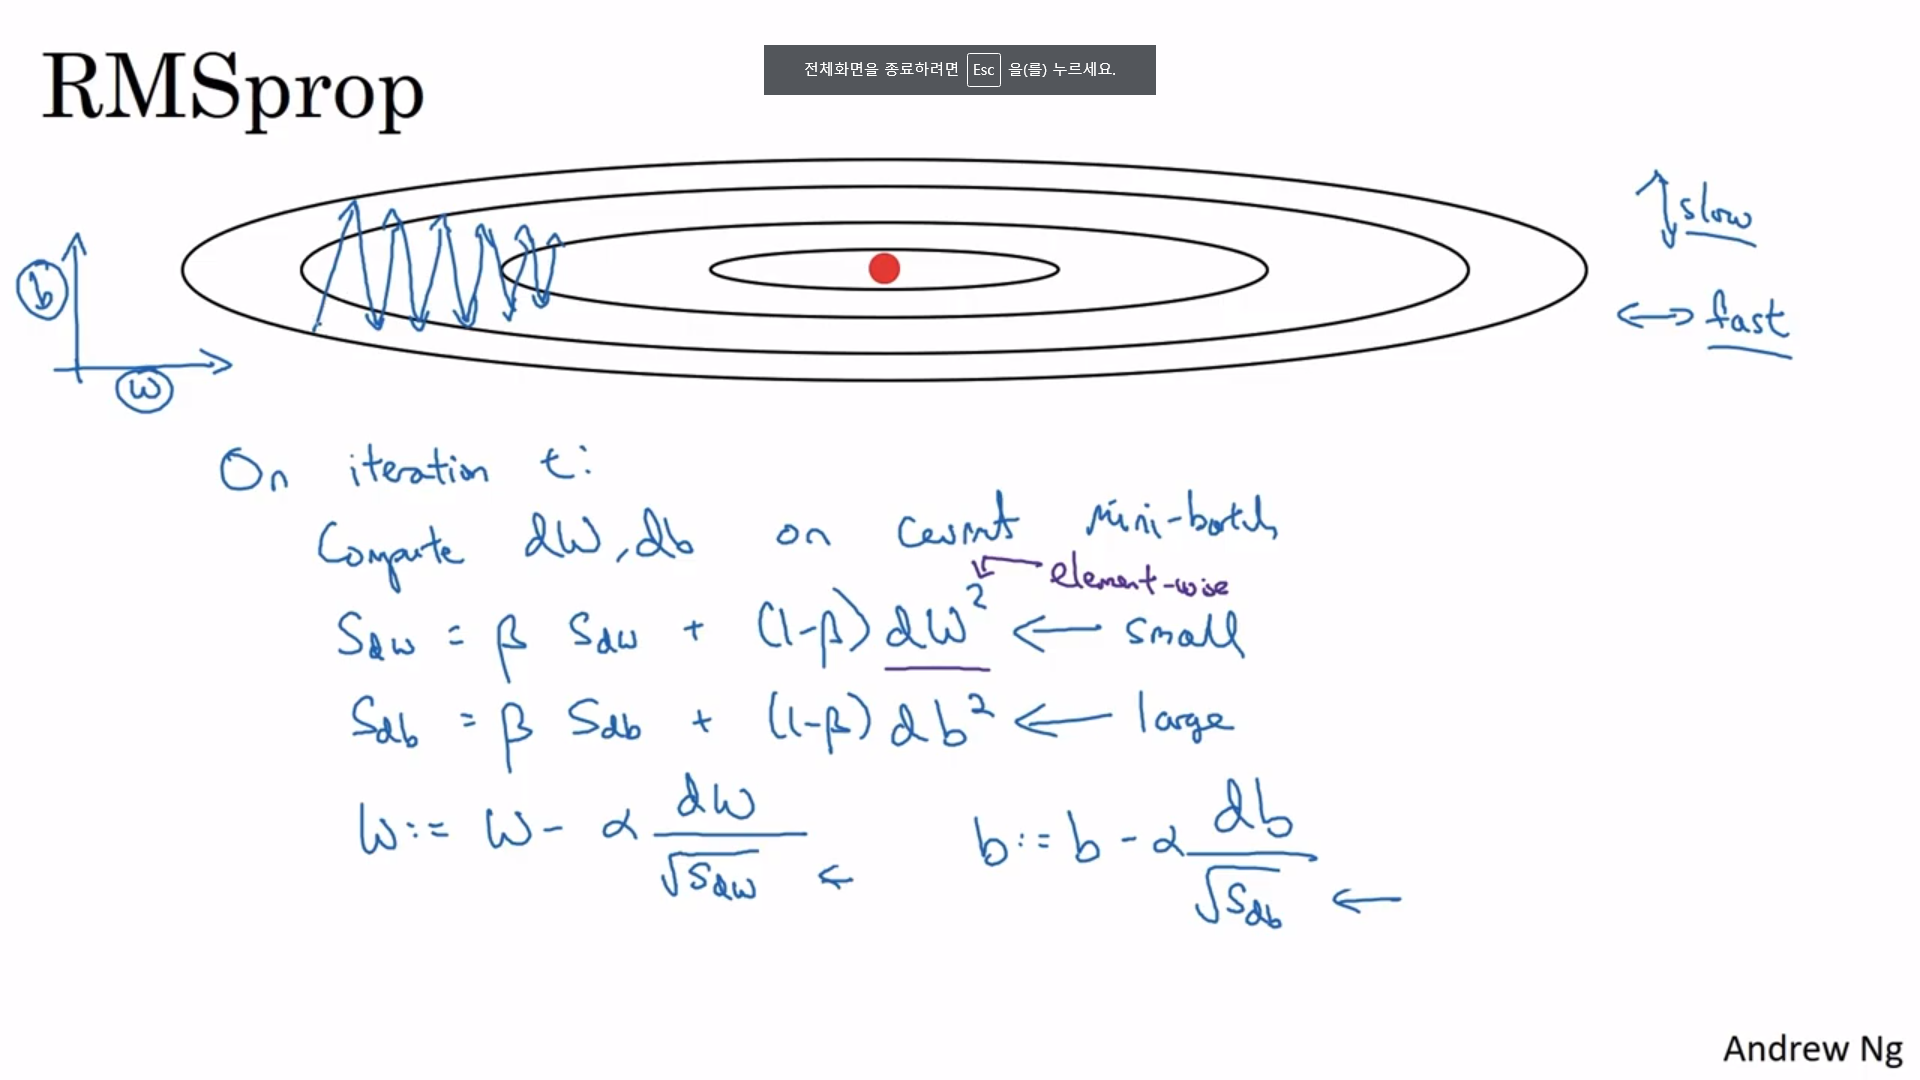 RMSprop
전체화면을 종료하려면 Esc 을(를) 누르세요.
slow
b
fast
w
On iteration t:
Compute dW, db on current mini-batch
element-wise
Sdw = β Sdw + (1-β) dW² ← small
Sdb = β Sdb + (1-β) db² ← large
W := W - α dW/√Sdw ← b := b - α db/√Sdb ←
Andrew Ng